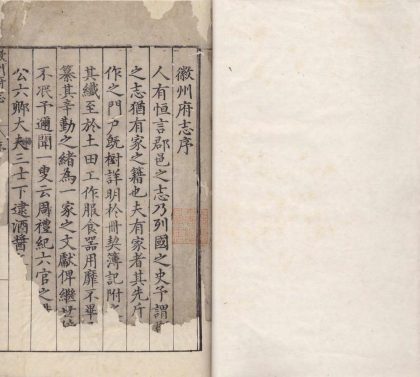 徽州府志序
人有恒言郡邑之志乃列國之史予謂
之志猶有家之籍也夫有家者其先斤
作之門戶既樹詳明於冊契簿記附之
其纖至於土田工作服食器用靡不畢
纂其辛勤之緒為一家之文獻俾繼
不泯予邇聞一叟云周禮紀六官之
公六卿大夫三士下逮酒醬
徽州府志